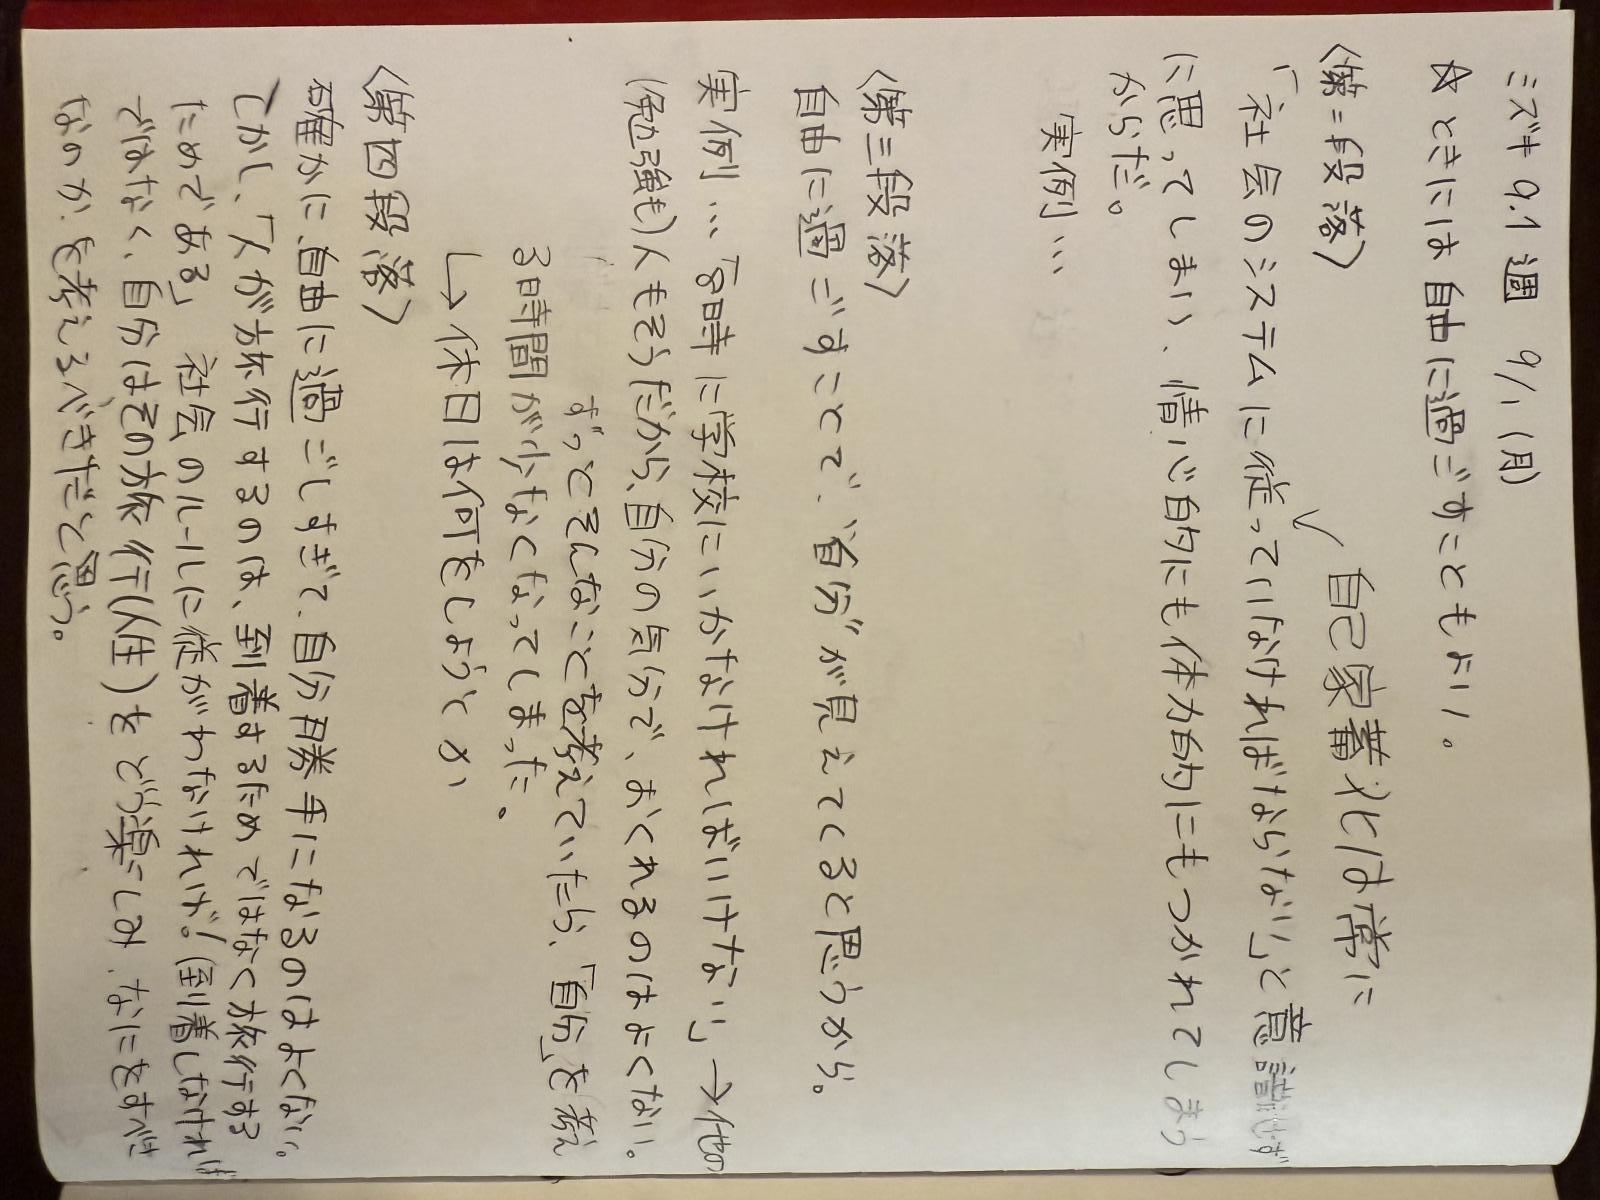 ミズキ 9.1週 9/1(月)
☆ときには自由に過ごすこともよい。
〈第二段落〉
自己家畜化は常に
「社会のシステムに従っていなければならない」と意識せず
に思ってしまい、情心的にも体力的にもつかれてしまう
からだ。
実例…
〈第三段落〉
自由に過ごすことで、"自分"が見えてくると思うから。
実例…「8時に学校にいかなければいけない」→他の
(勉強も)人もそうだから、自分の気分で、おくれるのはよくない。
ずっとそんなことを考えていたら、「自分」を考え
3時間が少なくなってしまった。
↳休日は何をしようとか
〈第四段落〉
確かに、自由に過ごしすぎて、自分勝手になるのはよくない。
しかし、「人が旅行するのは、到着するためではなく旅行する
ためである」 社会のルールに従がわなければ!(到着しなければ
ではなく、自分はその旅行(人生)をどう楽しみ、なにをすべき
なのか、を考えるべきだと思う。